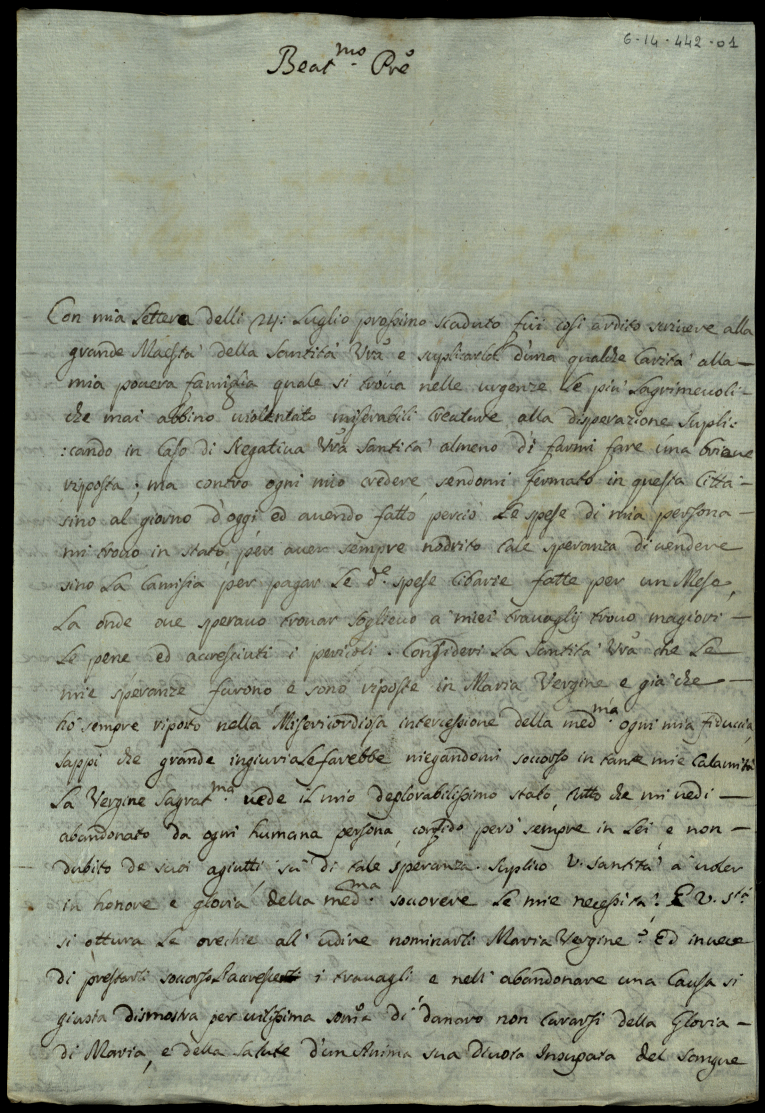 6-14-442-01
Beat.mo Pre
Con mia Lettera delli 24: Luglio prossimo scaduto fui cosi ardito scrivere alla
grande Maestà della Santità Vrã e suplicarla d'una qualche Carità alla
mia povera famiglia quale si trova nelle urgenze le piu Lagrimevoli
che mai abbino violentato miserabili Creature alla disperazione supli:
:cando in Caso di Negativa Vrã Santità almeno di farmi fare una brieve
risposta; ma contro ogni mio credere sendomi fermato in questa Città
sino al giorno d'oggi ed avendo fatto perciò le spese di mia persona
mi trovo in stato, per aver sempre nodrito tale speranza di vendere
sino La Camisia per pagar Le d.e spese Cibarie fatte per un Mese,
La onde ove speravo trovar soglievo a miei travaglij trovo magiori
Le pene ed accresciuti i pericoli. Consideri La Santità Vrã che Le
mie speranze furono e sono riposte in Maria Vergine e già che
hò sempre riposto nella Misericordiosa intercessione della med.ma ogni mia fiduccia,
sappi che grande ingiuria Le farebbe niegandomi soccorso in tante mie Calamità
La Vergine Sagrat.ma vede il mio deplorabilissimo stato, tutto che mi vedi
abandonato da ogni humana persona, confido però sempre in Lei, e non
dubito de suoi agiutti sù di tale speranza. Suplico V. Santità à voler
in honore e gloria della med.ma socorere Le mie necessità. E V. S.tà
si ottura Le orechie all' udire nominarli Maria Vergine? Ed invece
di prestarli soccorso Li accresce i travagli e nell' abandonare una Causa si
giusta dismostra per vilissima somã di danaro non curarsi della Gloria
di Maria, e della Salute d'un Anima sua Divota Insupata del sangue